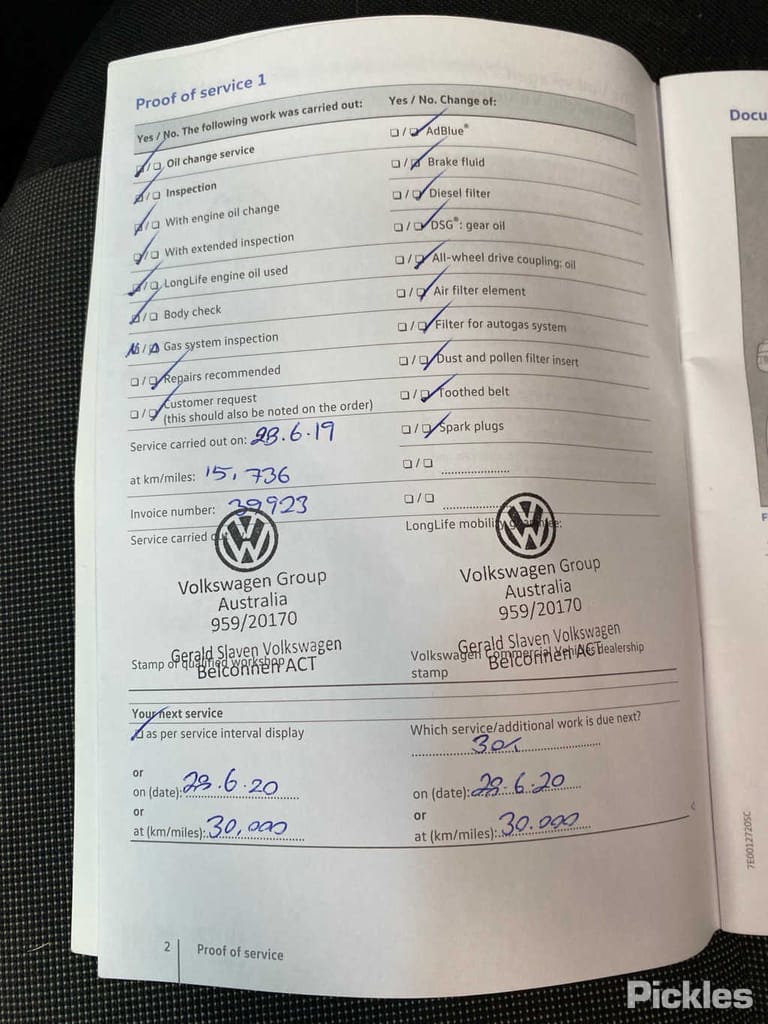 Proof of service 1
Yes / No. The following work was carried out:
☑/☐ Oil change service
☑/☐ Inspection
☑/☐ With engine oil change
☑/☐ With extended inspection
☑/☐ LongLife engine oil used
☑/☐ Body check
N/A Gas system inspection
☐/☑ Repairs recommended
☐/☑ Customer request
(this should also be noted on the order)
Service carried out on: 28.6.19
at km/miles: 15,736
Invoice number: 39923
Service carried
Volkswagen Group
Australia
959/20170
Gerald Slaven Volkswagen
Stamp of qualified workshop
Belconnen ACT
Yes / No. Change of:
☐/☑ AdBlue®
☐/☑ Brake fluid
☐/☑ Diesel filter
☐/☑ DSG®: gear oil
☐/☑ All-wheel drive coupling: oil
☐/☑ Air filter element
☐/☑ Filter for autogas system
☐/☑ Dust and pollen filter insert
☐/☑ Toothed belt
☐/☑ Spark plugs
☐/☐
☐/☐
LongLife mobility guarantee:
Volkswagen Group
Australia
959/20170
Gerald Slaven Volkswagen
Volkswagen Commercial Vehicles dealership
Belconnen ACT
stamp
Your next service
☑ as per service interval display
or
on (date): 28.6.20
or
at (km/miles): 30,000
Which service/additional work is due next?
30K
on (date): 28.6.20
or
at (km/miles): 30.000
2 Proof of service
Docu
F
7E0012720SC
Pickles